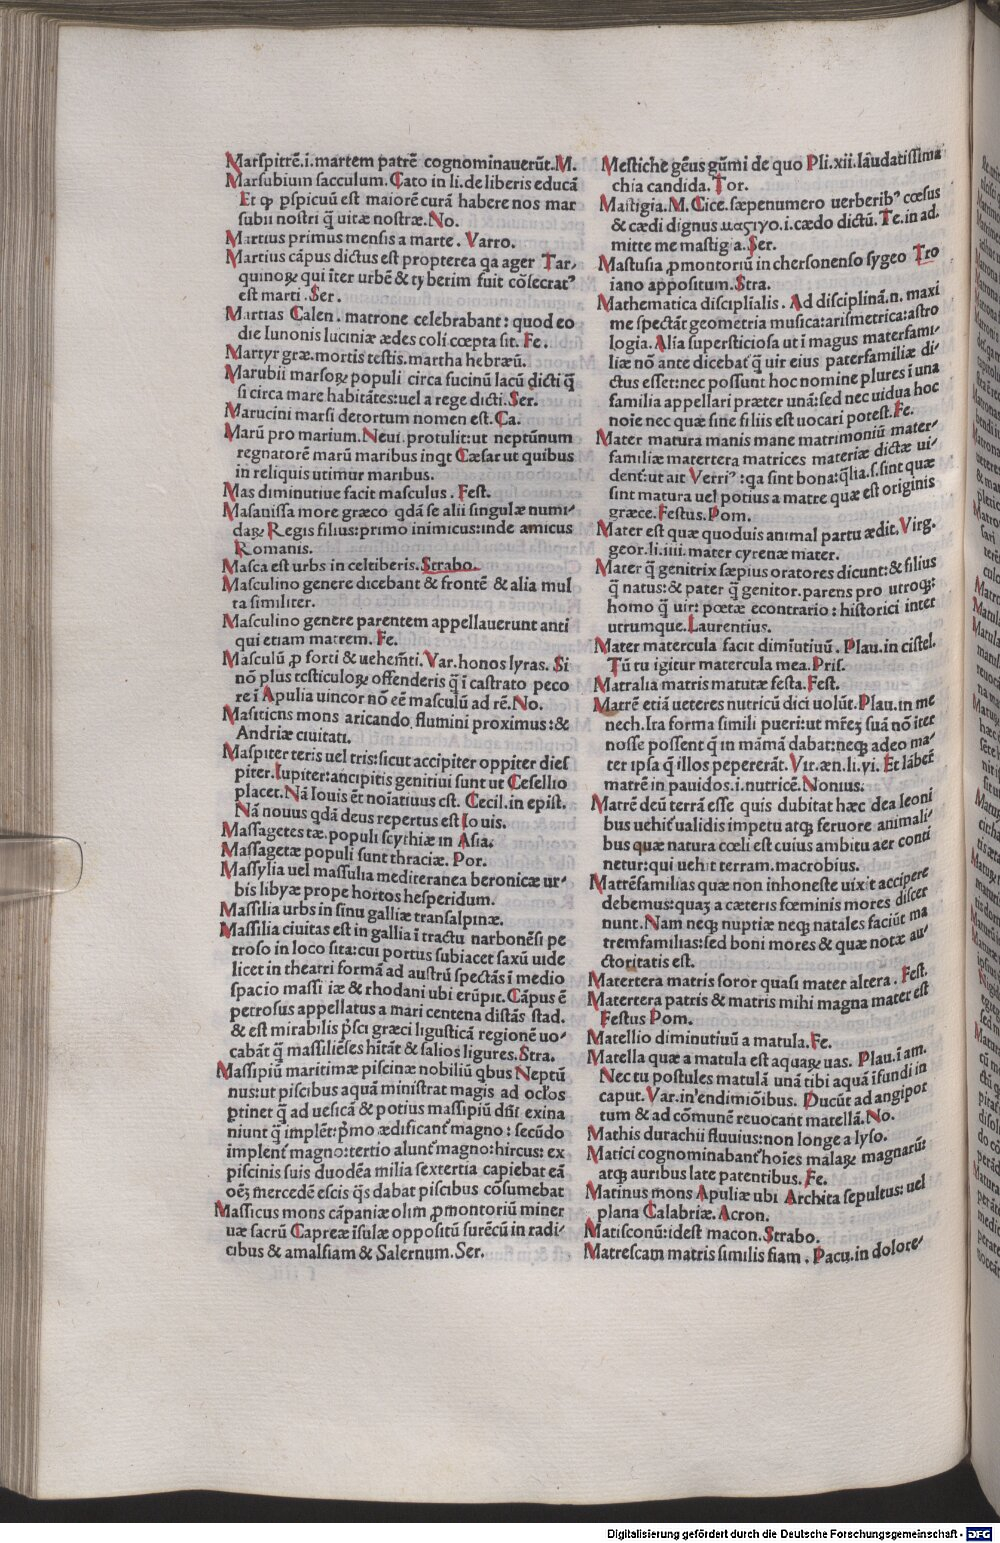 Marſpitrē.i.martem patrē cognominauerūt.M.
Marſubium ſacculum.Cato in li.de liberis educā
Et ꝙ ꝑſpicuū eſt maiorē curā habere nos mar
ſubii noſtri q̄ uitæ noſtræ.No.
Martius primus menſis a marte. Varro.
Martius cāpus dictus eſt propterea qa ager Tar⸗
quinoꝝ qui īter urbē & tyberim fuit cōſecratꝰ
eſt marti .Ser.
Martias Calen. matrone celebrabant: quod eo
die Iunonis luciniæ ædes coli cœpta ſit. Fe.
Martyr græ.mortis teſtis.martha hebræū.
Marubii marſoꝝ populi circa fucinū lacū dicti q̄
ſi circa mare habitātes:uel a rege dicti.Ser.
Marucini marſi detortum nomen eſt.Ca.
Marū pro marium.Neui.protulit:ut neptūnum
regnatorē marū maribus inqt Cæſar ut quibus
in reliquis utimur maribus.
Mas diminutiue facit maſculus. Feſt.
Maſaniſſa more græco qdā ſe alii ſingulæ numi⸗
daꝝ Regis filius:primo inimicus:inde amicus
Romanis.
Maſca eſt urbs in celtiberis.Strabo.
Maſculino genere dicebant & frontē & alia mul
ta ſimiliter.
Maſculino genere parentem appellauerunt anti
qui etiam matrem. Fe.
Maſculū ꝓ forti & uehemīti.Var.honos lyras. Si
nō plus teſticuloꝝ offenderis q̄ ī caſtrato peco
re ī Apulia uincor nō eē maſculū ad rē.No.
Maſiticns mons aricando flumini proximus:&
Andriæ ciuitati.
Maſpiter teris uel tris:ſicut accipiter oppiter dieſ
piter.Iupiter:ancipitis genitiui ſunt ut Ceſellio
placet.Nā Iouis ēt noīatiuus eſt. Cecil.in epiſt.
Nā nouus qdā deus repertus eſt Iouis.
Maſſagetes tæ.populi ſcythiæ in Aſia.
Maſſagetæ populi ſunt thraciæ. Por.
Maſſylia uel maſſulia mediteranea beronicæ ur⸗
bis libyæ prope hortos heſperidum.
Maſſilia urbs in ſinu galliæ tranſalpinæ.
Maſſilia ciuitas eſt in gallia ī tractu narbonēſi pe
troſo in loco ſita:cui portus ſubiacet ſaxū uide
licet in theatri formā ad auſtrū ſpectās ī medio
ſpacio maſſi iæ & rhodani ubi erūpit.Cāpus ē
petroſus appellatus a mari centena diſtās ſtad.
& eſt mirabilis pſci græci liguſticā regionē uo⸗
cabāt q̄ maſſiliēſes hītāt & ſalios ligures.Stra.
Maſſipiū maritimæ piſcinæ nobiliū qbus Neptū
nus:ut piſcibus aquā miniſtrat magis ad oclos
ꝑtinet q̄ ad ueſicā & potius maſſipiū dn̄i exina
niunt q̄ implēt:pmo ædificant magno: ſecūdo
implent magno:tertio alunt magno:hircus: ex
piſcinis ſuis duodēa milia ſextertia capiebat eā
oēꝫ mercedē eſcis qs dabat piſcibus cōſumebat
Maſſicus mons cāpaniæ olim ꝓmontoriū miner
uæ ſacrū Capreæ īſulæ oppoſitū ſurēcū in radi⸗
cibus & amalfiam & Salernum.Ser.
Meſtiche gēus gūmi de quo Pli.xii.laudatiſſima
chia candida.Tor.
Maſtigia.M.Cice.ſæpenumero uerberibꝰ cœſus
& cædi dignus μαςιγο.i.cædo dictū.Te.in ad.
mitte me maſtigia.Ser.
Maſtuſia ꝓmontoriū in cherſonenſo ſygeo Tro
iano appoſitum.Stra.
Mathematica diſciplialis. Ad diſciplinā.n.maxi
me ſpectāt geometria muſica:ariſmetrica:aſtro
logia. Alia ſuperſticioſa ut ī magus materfami⸗
liæ nō ante dicebat q̄ uir eius paterfamiliæ di⸗
ctus eſſet:nec poſſunt hoc nomine plures ī una
familia appellari præter unā:ſed nec uidua hoc
noīe nec quæ ſine filiis eſt uocari poteſt.Fe.
Mater matura manis mane matrimoniū mater⸗
familiæ matertera matrices materiæ dictæ ui⸗
dent:ut ait Verriꝰ:qa ſint bona:q̄lia.ſ.ſint quæ
ſint matura uel potius a matre quæ eſt originis
græce.Feſtus.Pom.
Mater eſt quæ quoduis animal partu ædit.Virg.
geor.li.iiii.mater cyrenæ mater.
Mater q̄ genitrix ſæpius oratores dicunt:& filius
q̄ natus:& pater q̄ genitor.parens pro utroqꝫ:
homo q̄ uir: pœtæ econtrario: hiſtorici inter
utrumque.Laurentius.
Mater matercula facit dimīutiuū. Plau.in ciſtel.
Tū tu igitur matercula mea.Priſ.
Matralia matris matutæ feſta.Feſt.
Matrē etiā ueteres nutricū dici uolūt.Plau.in me
nech.Ita forma ſimili pueri:ut mr̄eꝫ ſuā nō īter
noſſe poſſent q̄ in māmā dabat:neqꝫ adeo ma⸗
ter ipſa q̄ illos pepererāt. Vir.æn.li.vi. Et labēt
matrē in pauidos.i.nutricē.Nonius.
Matrē deū terrā eſſe quis dubitat hæc dea leoni
bus uehit ualidis impetu atqꝫ feruore animali⸗
bus quæ natura cœli eſt cuius ambitu aer conti
netur:qui uehit terram.macrobius.
Matrēfamilias quæ non inhoneſte uixit accipere
debemus:quaꝫ a cæteris fœminis mores diſcer
nunt.Nam neqꝫ nuptiæ neqꝫ natales faciūt ma
tremfamilias:ſed boni mores & quæ notæ au⸗
ctoritatis eſt.
Matertera matris ſoror quaſi mater altera. Feſt.
Matertera patris & matris mihi magna mater eſt
Feſtus Pom.
Matellio diminutiuū a matula.Fe.
Matella quæ a matula eſt aquaꝝ uas. Plau.ī am.
Nec tu poſtules matulā unā tibi aquā īfundi in
caput. Var.in'endimiōibus. Ducūt ad angipor
tum & ad cōmunē reuocant matellā.No.
Mathis durachii fluuius:non longe a lyſo.
Matici cognominabant hoīes malaꝝ magnarū:
atqꝫ auribus late patentibus. Fe.
Matinus mons Apuliæ ubi Archita ſepultus: uel
plana Calabriæ. Acron.
Matiſconū:ideſt macon.Strabo.
Matreſcam matris ſimilis fiam. Pacu.in dolore⸗
Digitalisierung gefördert durch die Deutsche Forschungsgemeinschaft - DFG